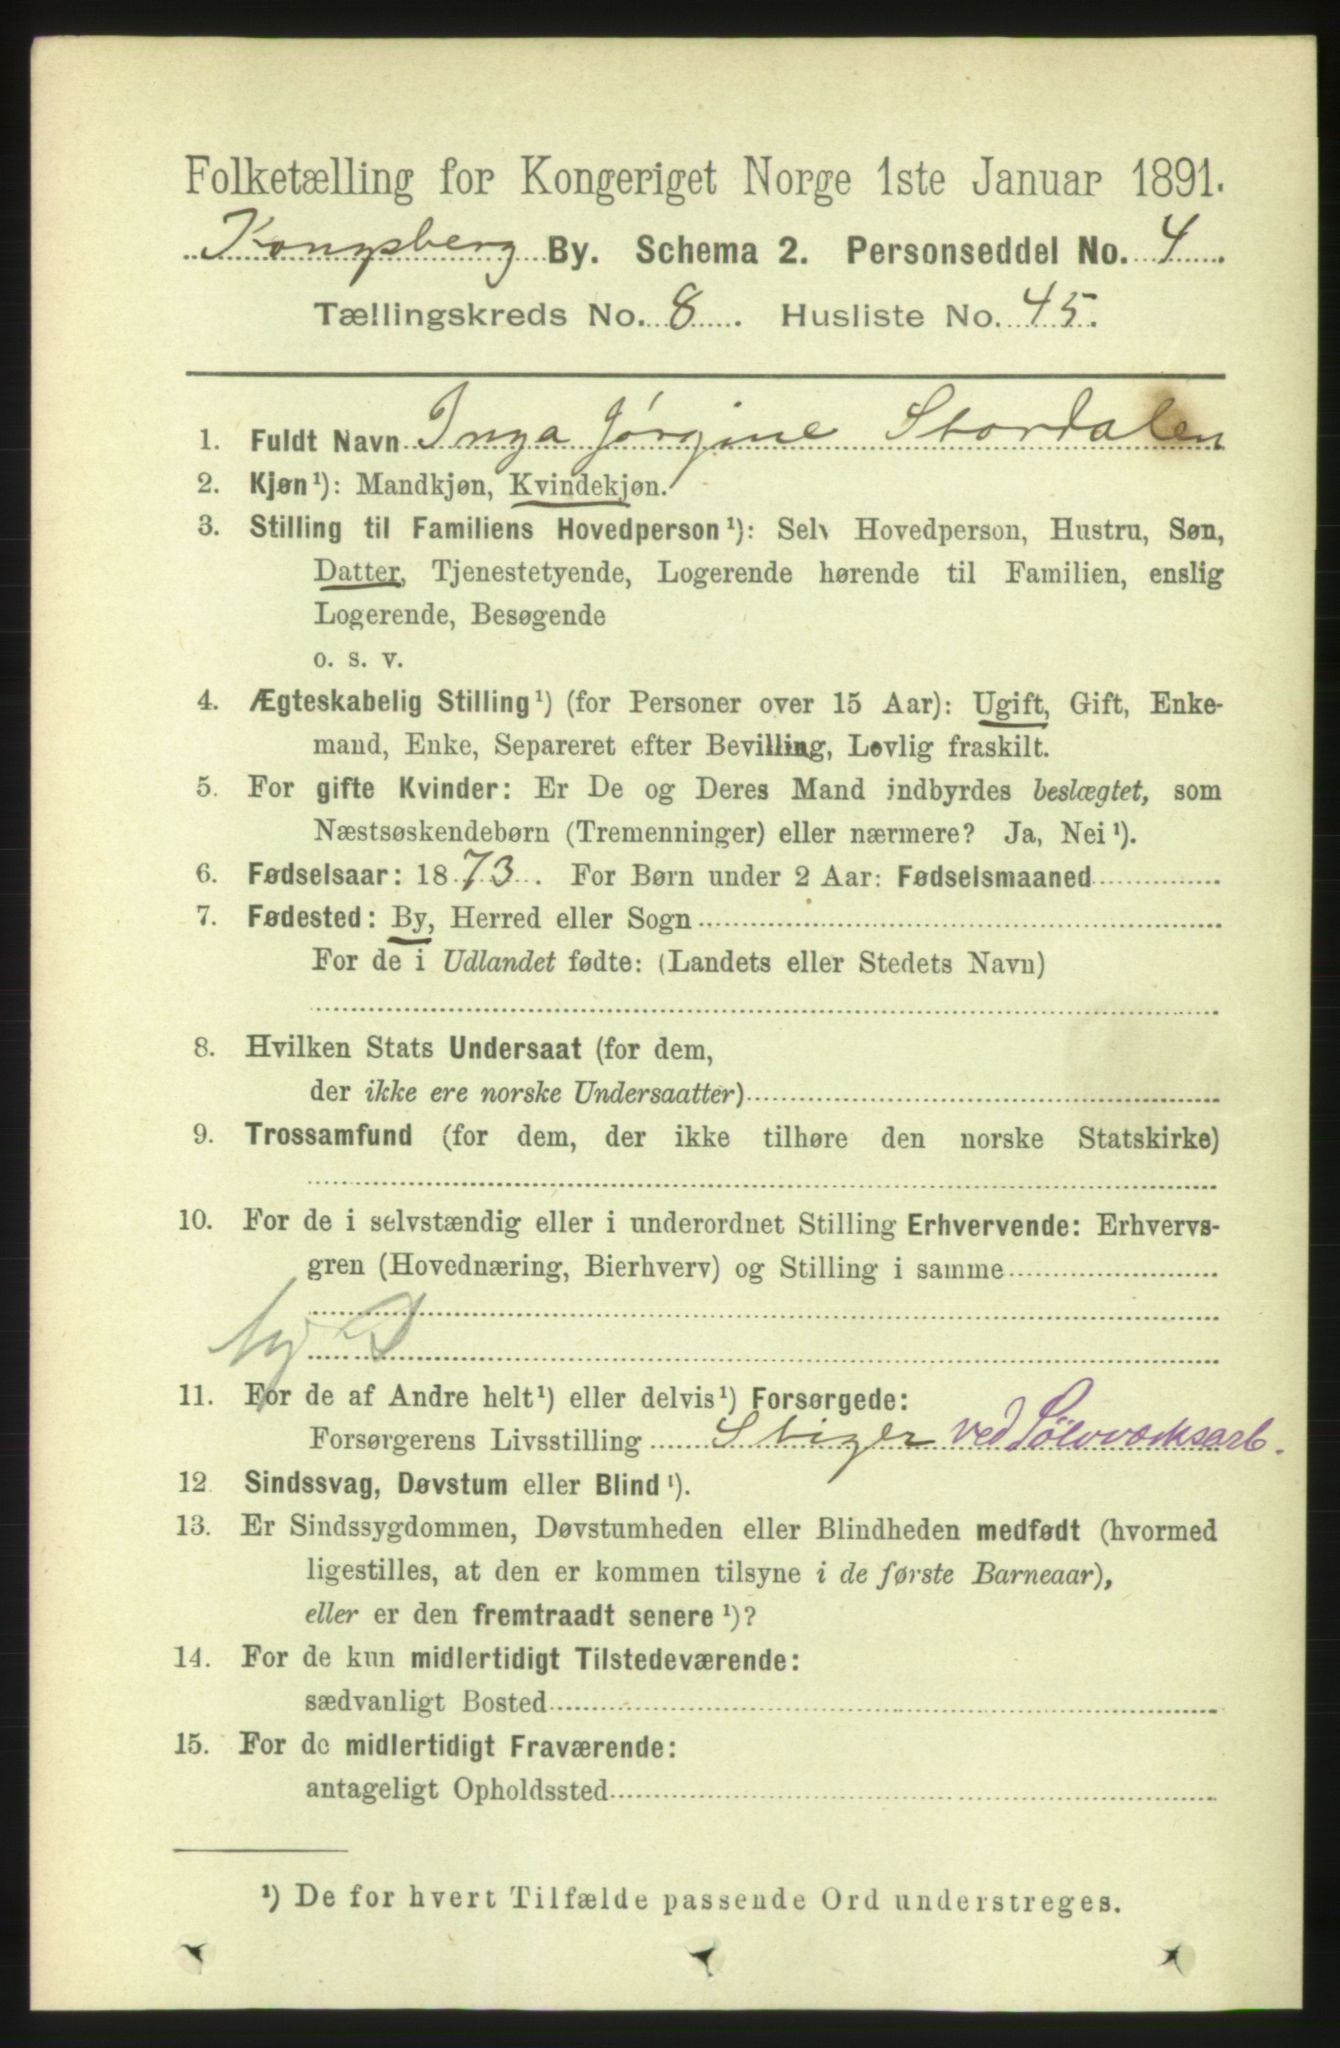 Folketælling for Kongeriget Norge 1ste Januar 1891.
Kongsberg By. Schema 2. Personseddel No. 4
Tællingskreds No. 8. Husliste No. 45.
1. Fuldt Navn Inga Jørgine Stordalen
2. Kjøn¹): Mandkjøn, Kvindekjøn.
3. Stilling til Familiens Hovedperson¹): Selv Hovedperson, Hustru, Søn,
Datter, Tjenestetyende, Logerende hørende til Familien, enslig
Logerende, Besøgende
o. s. v.
4. Ægteskabelig Stilling¹) (for Personer over 15 Aar): Ugift, Gift, Enke-
mand, Enke, Separeret efter Bevilling, Lovlig fraskilt.
5. For gifte Kvinder: Er De og Deres Mand indbyrdes beslægtet, som
Næstsøskendebørn (Tremenninger) eller nærmere? Ja, Nei¹).
6. Fødselsaar: 1873. For Børn under 2 Aar: Fødselsmaaned
7. Fødested: By, Herred eller Sogn
For de i Udlandet fødte: (Landets eller Stedets Navn)
8. Hvilken Stats Undersaat (for dem,
der ikke ere norske Undersaatter)
9. Trossamfund (for dem, der ikke tilhøre den norske Statskirke)
10. For de i selvstændig eller i underordnet Stilling Erhvervende: Erhvervs-
gren (Hovednæring, Bierhverv) og Stilling i samme
11. For de af Andre helt¹) eller delvis¹) Forsørgede:
Forsørgerens Livsstilling Stiger ved Sölvværksarb.
12 Sindssvag, Døvstum eller Blind¹).
13. Er Sindssygdommen, Døvstumheden eller Blindheden medfødt (hvormed
ligestilles, at den er kommen tilsyne i de første Barneaar),
eller er den fremtraadt senere¹)?
14. For de kun midlertidigt Tilstedeværende:
sædvanligt Bosted
15. For de midlertidigt Fraværende:
antageligt Opholdssted
¹) De for hvert Tilfælde passende Ord understreges.